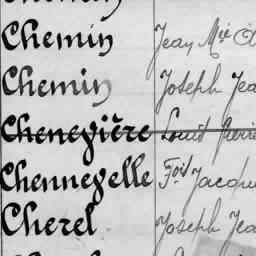 Chemin Jean Mie
Chemin Joseph Jea
Chenegière Louis Pierre
Chennegelle Fois Jacqu
Cherel Joseph Jea